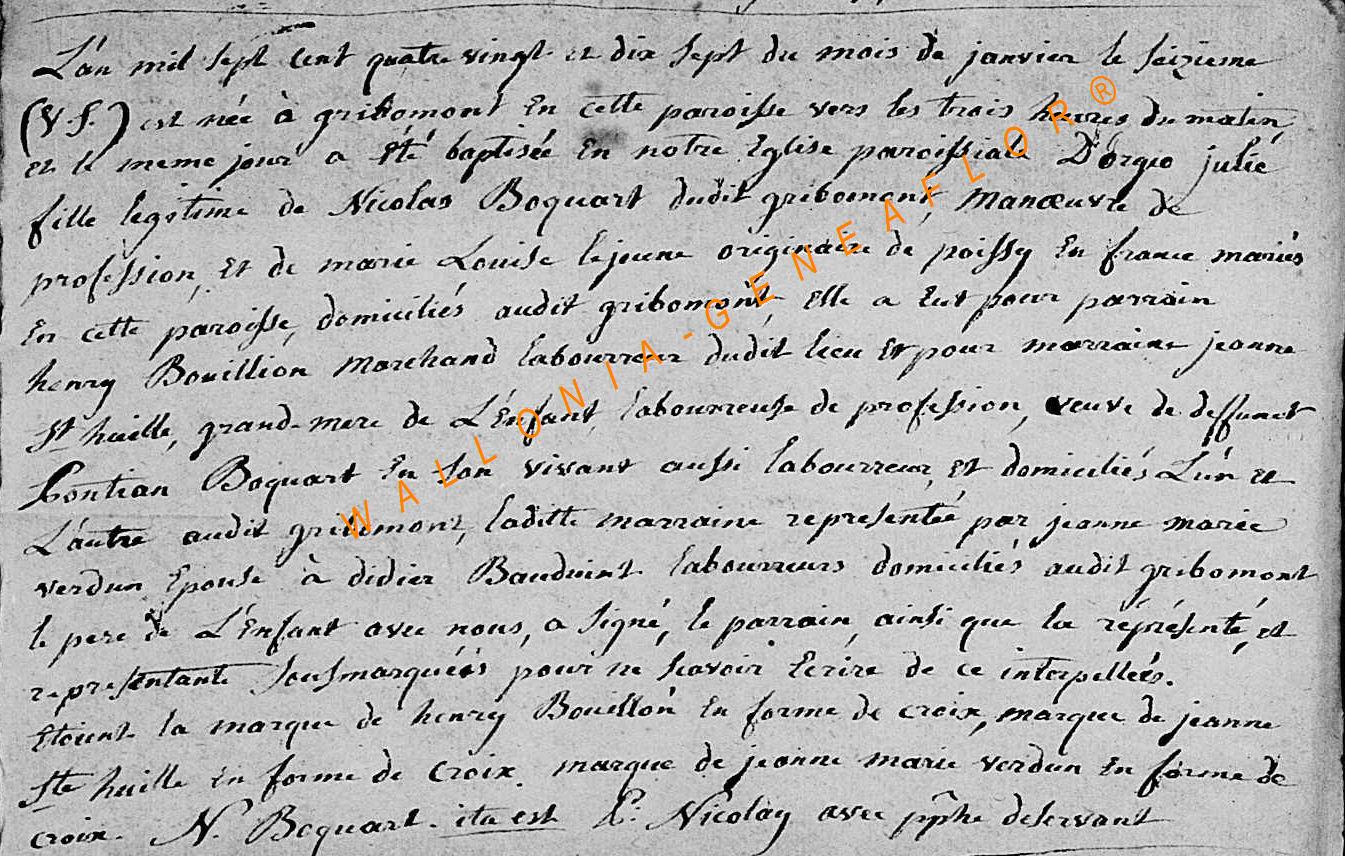 L'án mil sept cent quatre vingt et dix sept du mois de janvier le seizieme
(V.S.) est née à gribomont En cette paroisse vers les trois heures du matin,
et le meme jour a été baptisée En notre Eglise paroissiale D'orgeo julie
fille legitime de Nicolas Boquart dudit gribomont, Manœuvre de
profession, Et de marie Louise lejeune originaire de poissy En france mariés
En cette paroisse, domiciliés audit gribomont, Elle a Eut pour parrain
henry Bouillion Marchand labourreur dudit lieu Et pour marraine jeanne
St huille, grand-mere de L'Enfant, labourreuse de profession, veuve de deffunct
Pontian Boquart En son vivant aussi labourreur, Et domiciliés L'ún et
L'autre audit gribomont, laditte marraine representée par jeanne marie
verdun Epouse à didier Bauduint labourreurs domiciliés audit gribomont
le pere de L'Enfant avec nous, a signé, le parrain, ainsi que la réprésenté, et
representante sousmarquéés pour ne scavoir Ecrire de ce interpellées.
Etoient la marque de henry Bouillon En forme de croix, marque de jeanne
Ste huille en forme de Croix. marque de jeanne marie verdun En forme de
croix. N. Boquart. ita est Nicolay avec deservant
WALLONIA-GENEAFLOR®